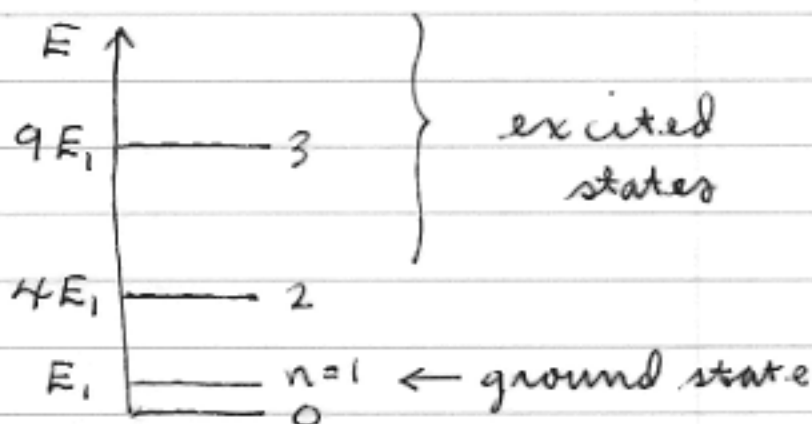 E
9E₁ 3 excited
states
4E₁ 2
E₁ n=1 ← ground state
0